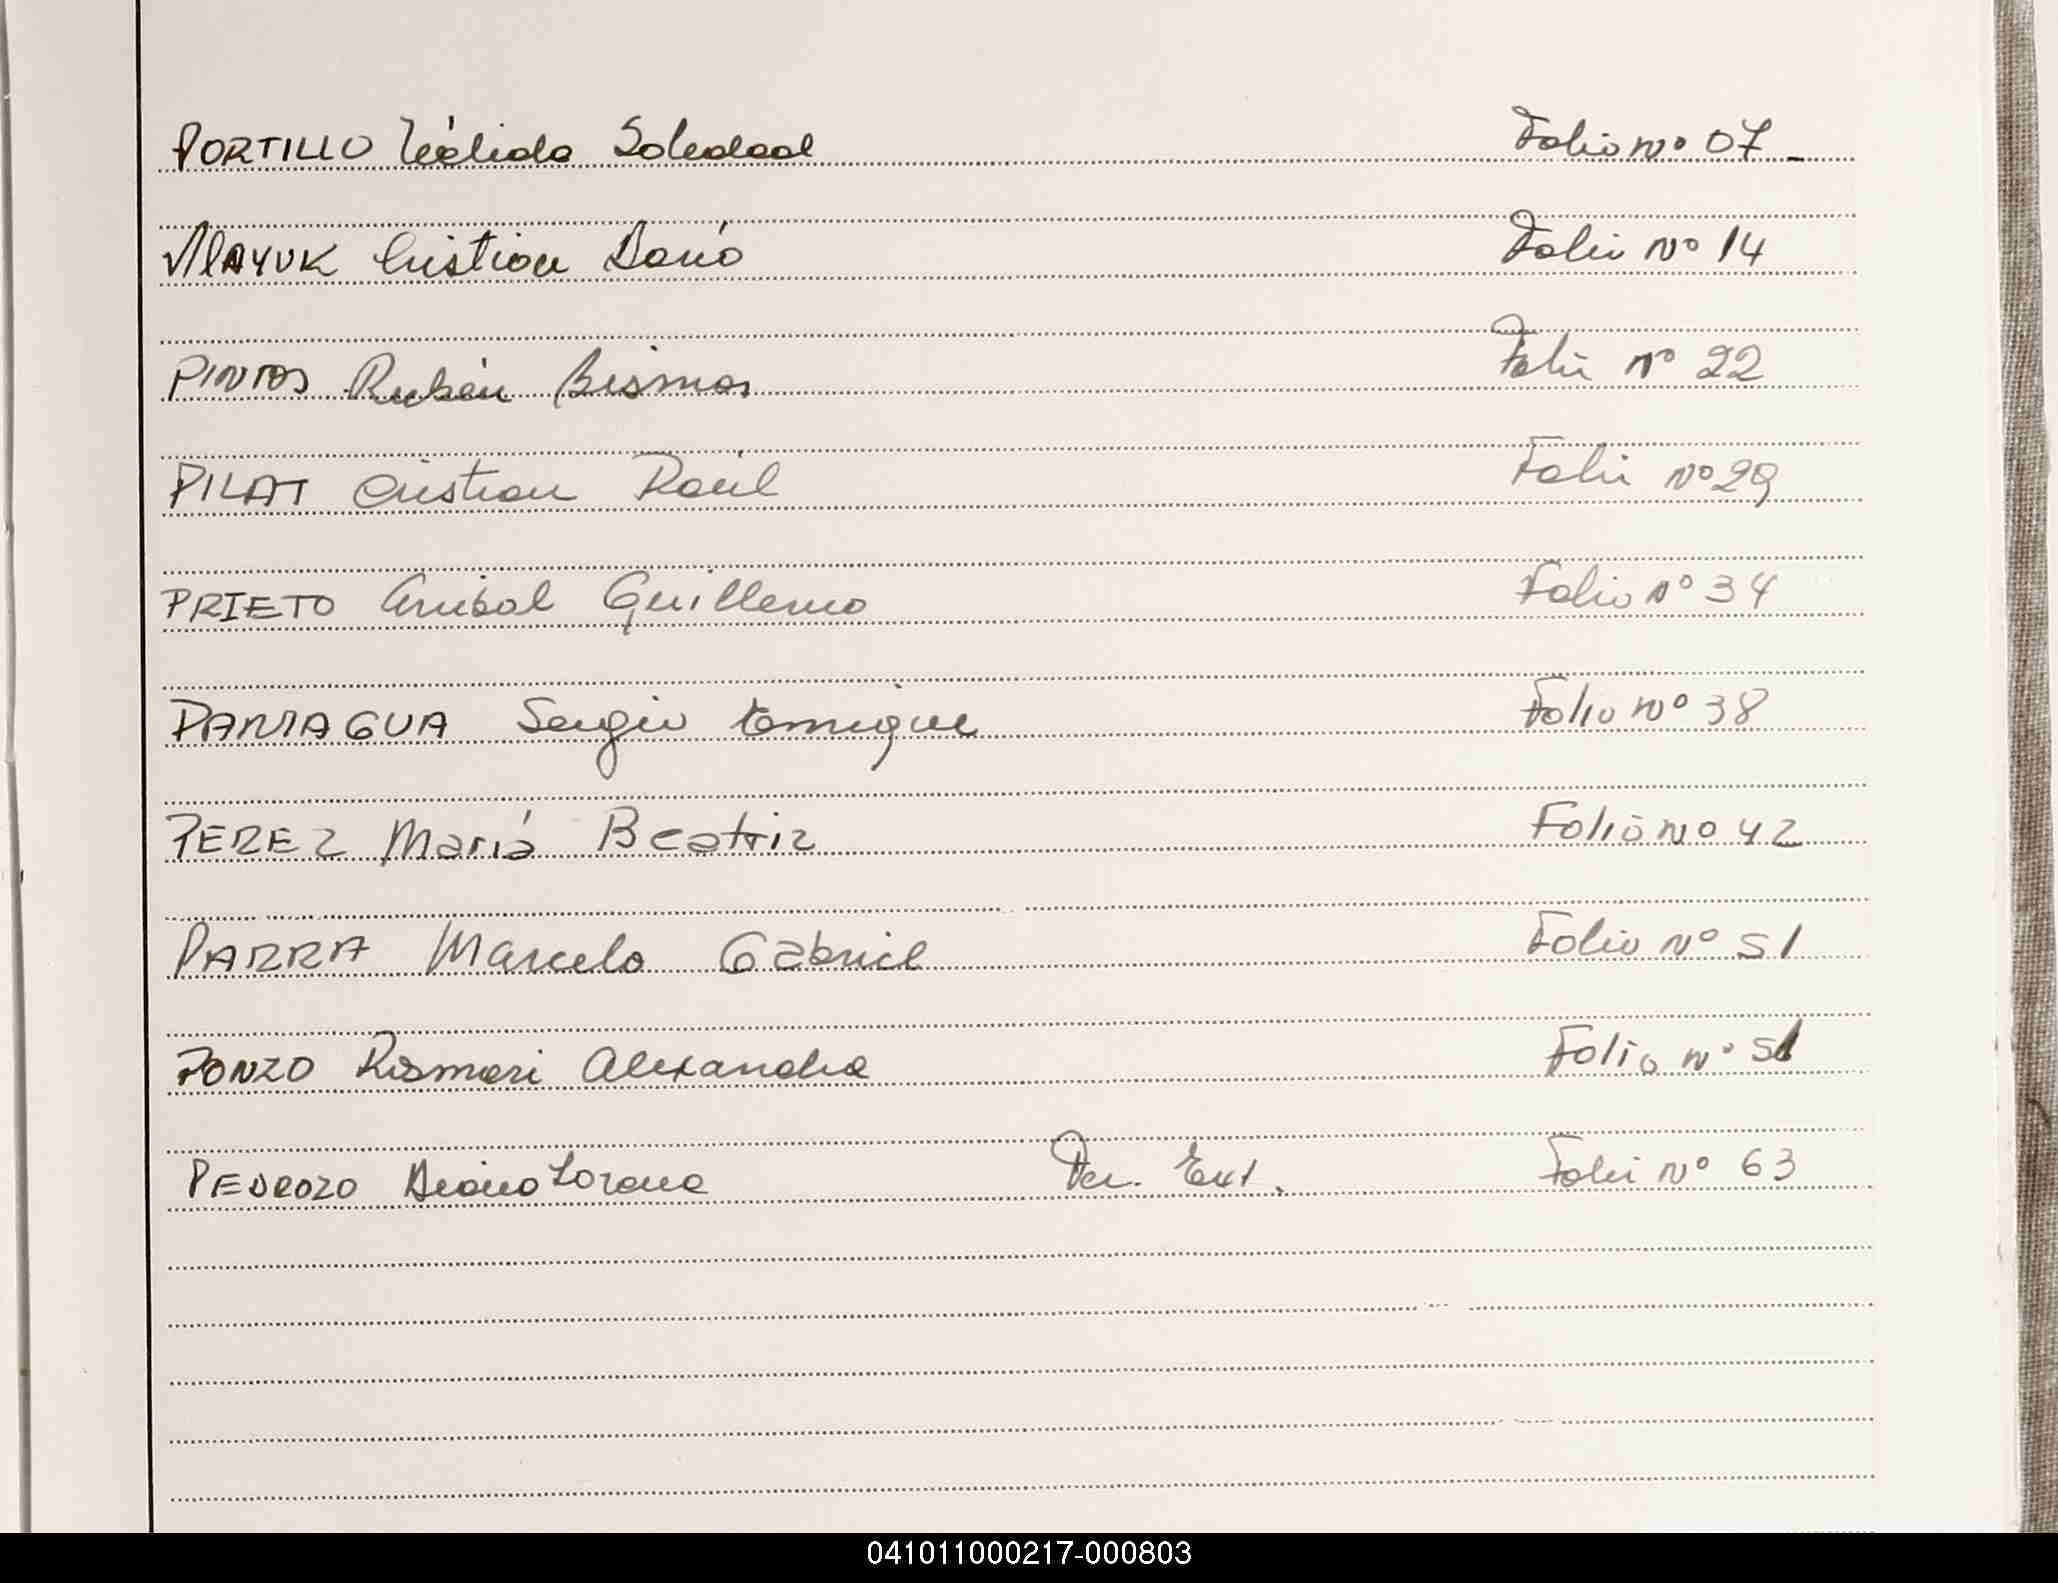 PORTILLO Nélida Soledad Folio nº 07
Cristian Darío Folio Nº 14
PINTOS Rubén Folio Nº 22
PILAT Cristian Raúl Folio Nº 29
PRIETO Anibal Guillermo Folio Nº 34
PANIAGUA Sergio Enrique Folio Nº 38
PEREZ Mariá Beatriz Folio nº 42
PARRA Marcelo Gabriel Folio Nº 51
PONZO Rosmeri Alexandra Folio nº 51
PEDROZO Diana Lorena Per. Ext. Folio Nº 63
041011000217-000803